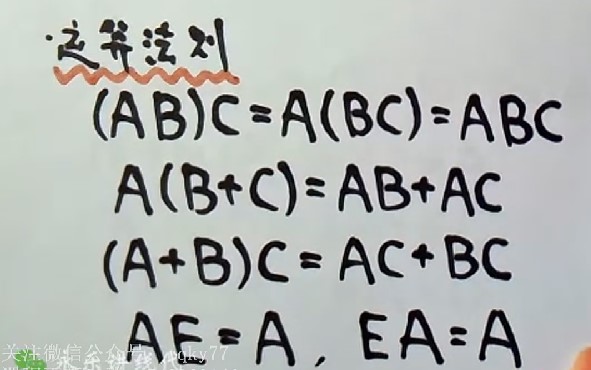 ·运算法则
(AB)C=A(BC)=ABC
A(B+C)=AB+AC
(A+B)C=AC+BC
AE=A, EA=A
关注微信公众号